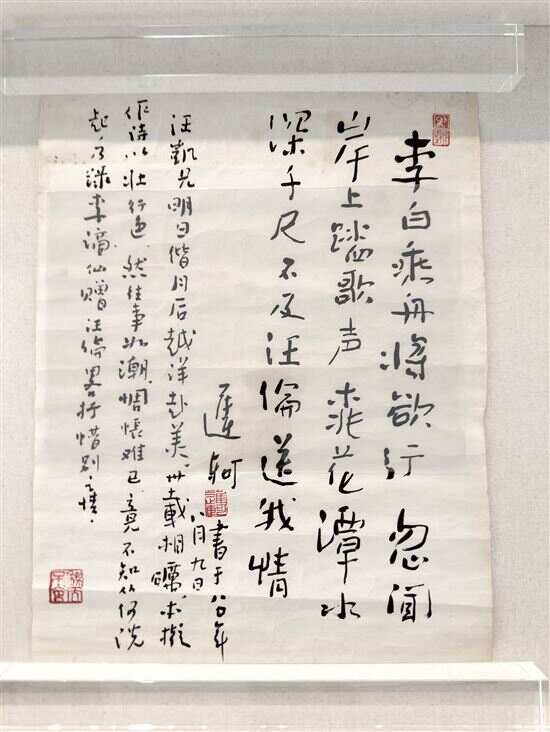 李白乘舟将欲行 忽闻
岸上踏歌声 桃花潭水
深千尺不及汪倫送我情
书于八〇年
八月九日
汪凯兄明日偕月后越洋赴美。卅载相瞩，本拟
作诗以壮行色，然往事如潮，惆怅难已，竟不知从何说
起，乃录李谪仙赠汪倫畧抒惜别之情。